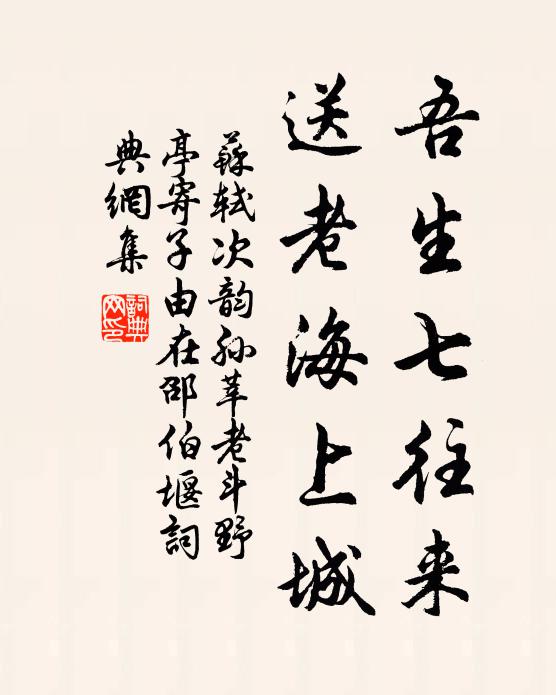 吾生七往来
送老海上城
蘇軾次韵孙莘老斗野
亭寄子由在邵伯堰詞
典網集
詞典
网印